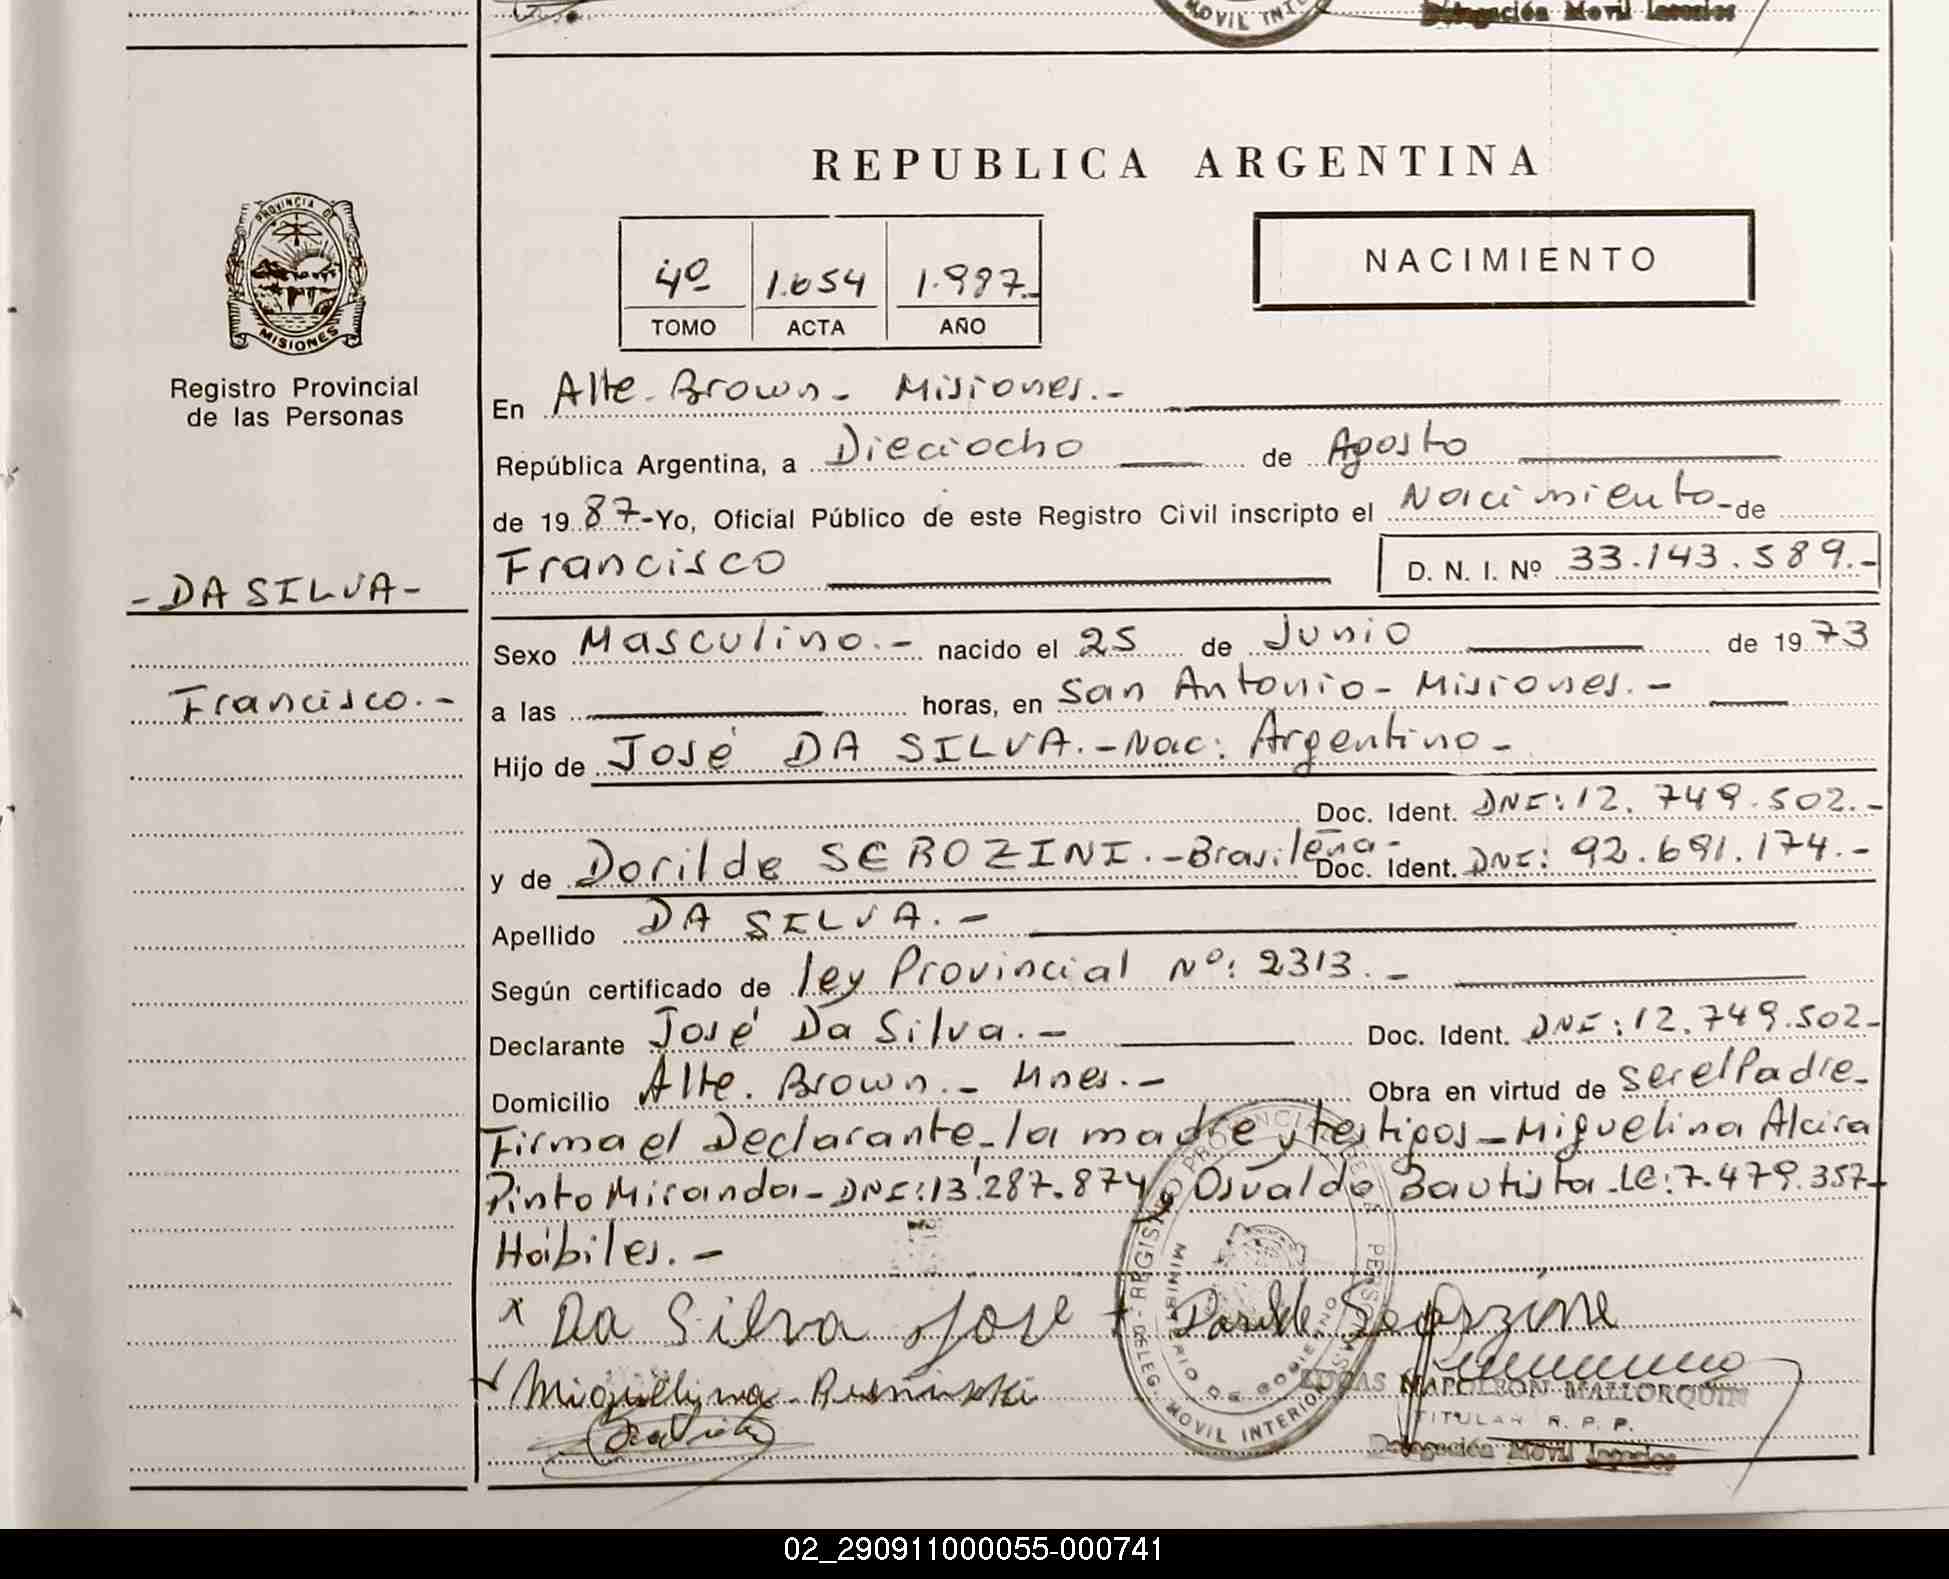 MOVIL INTE
Delegación Movil Interior
REPUBLICA ARGENTINA
PROVINCIA DE
MISIONES
Registro Provincial
de las Personas
4º 1.654 1.987.-
TOMO ACTA AÑO
NACIMIENTO
En Alte. Brown - Misiones.-
República Argentina, a Dieciocho de Agosto
de 19 87-Yo, Oficial Público de este Registro Civil inscripto el Nacimiento-de
Francisco D. N. I. Nº 33.143.589.-
-DA SILVA-
Francisco.-
Sexo Masculino.- nacido el 25 de Junio de 19 73
a las horas, en San Antonio - Misiones.-
Hijo de José DA SILVA.-Nac: Argentino-
Doc. Ident. DNI: 12.749.502.-
y de Dorilde SEROZINI.-Brasileña- Doc. Ident. DNI: 92.691.174.-
Apellido DA SILVA.-
Según certificado de ley Provincial Nº: 2313.-
Declarante José Da Silva.- Doc. Ident. DNI: 12.749.502-
Domicilio Alte. Brown.- Mnes.- Obra en virtud de ser el Padre-
Firma el Declarante-la madre y testigos-Miguelina Alcira
Pinto Miranda-DNI: 13.287.874 y Osvaldo Bautista-LE: 7.479.357-
Hábiles.-
x Da Silva Jose + Dorilde Serozine
Miguelina
LUCAS NAPOLEON MALLORQUIN
TITULAR R. P. P.
Delegación Movil Interior
DELEG. MOVIL INTERIOR - REGISTRO PROVINCIAL DE LAS PERSONAS
MINISTERIO DE GOBIERNO
02_290911000055-000741